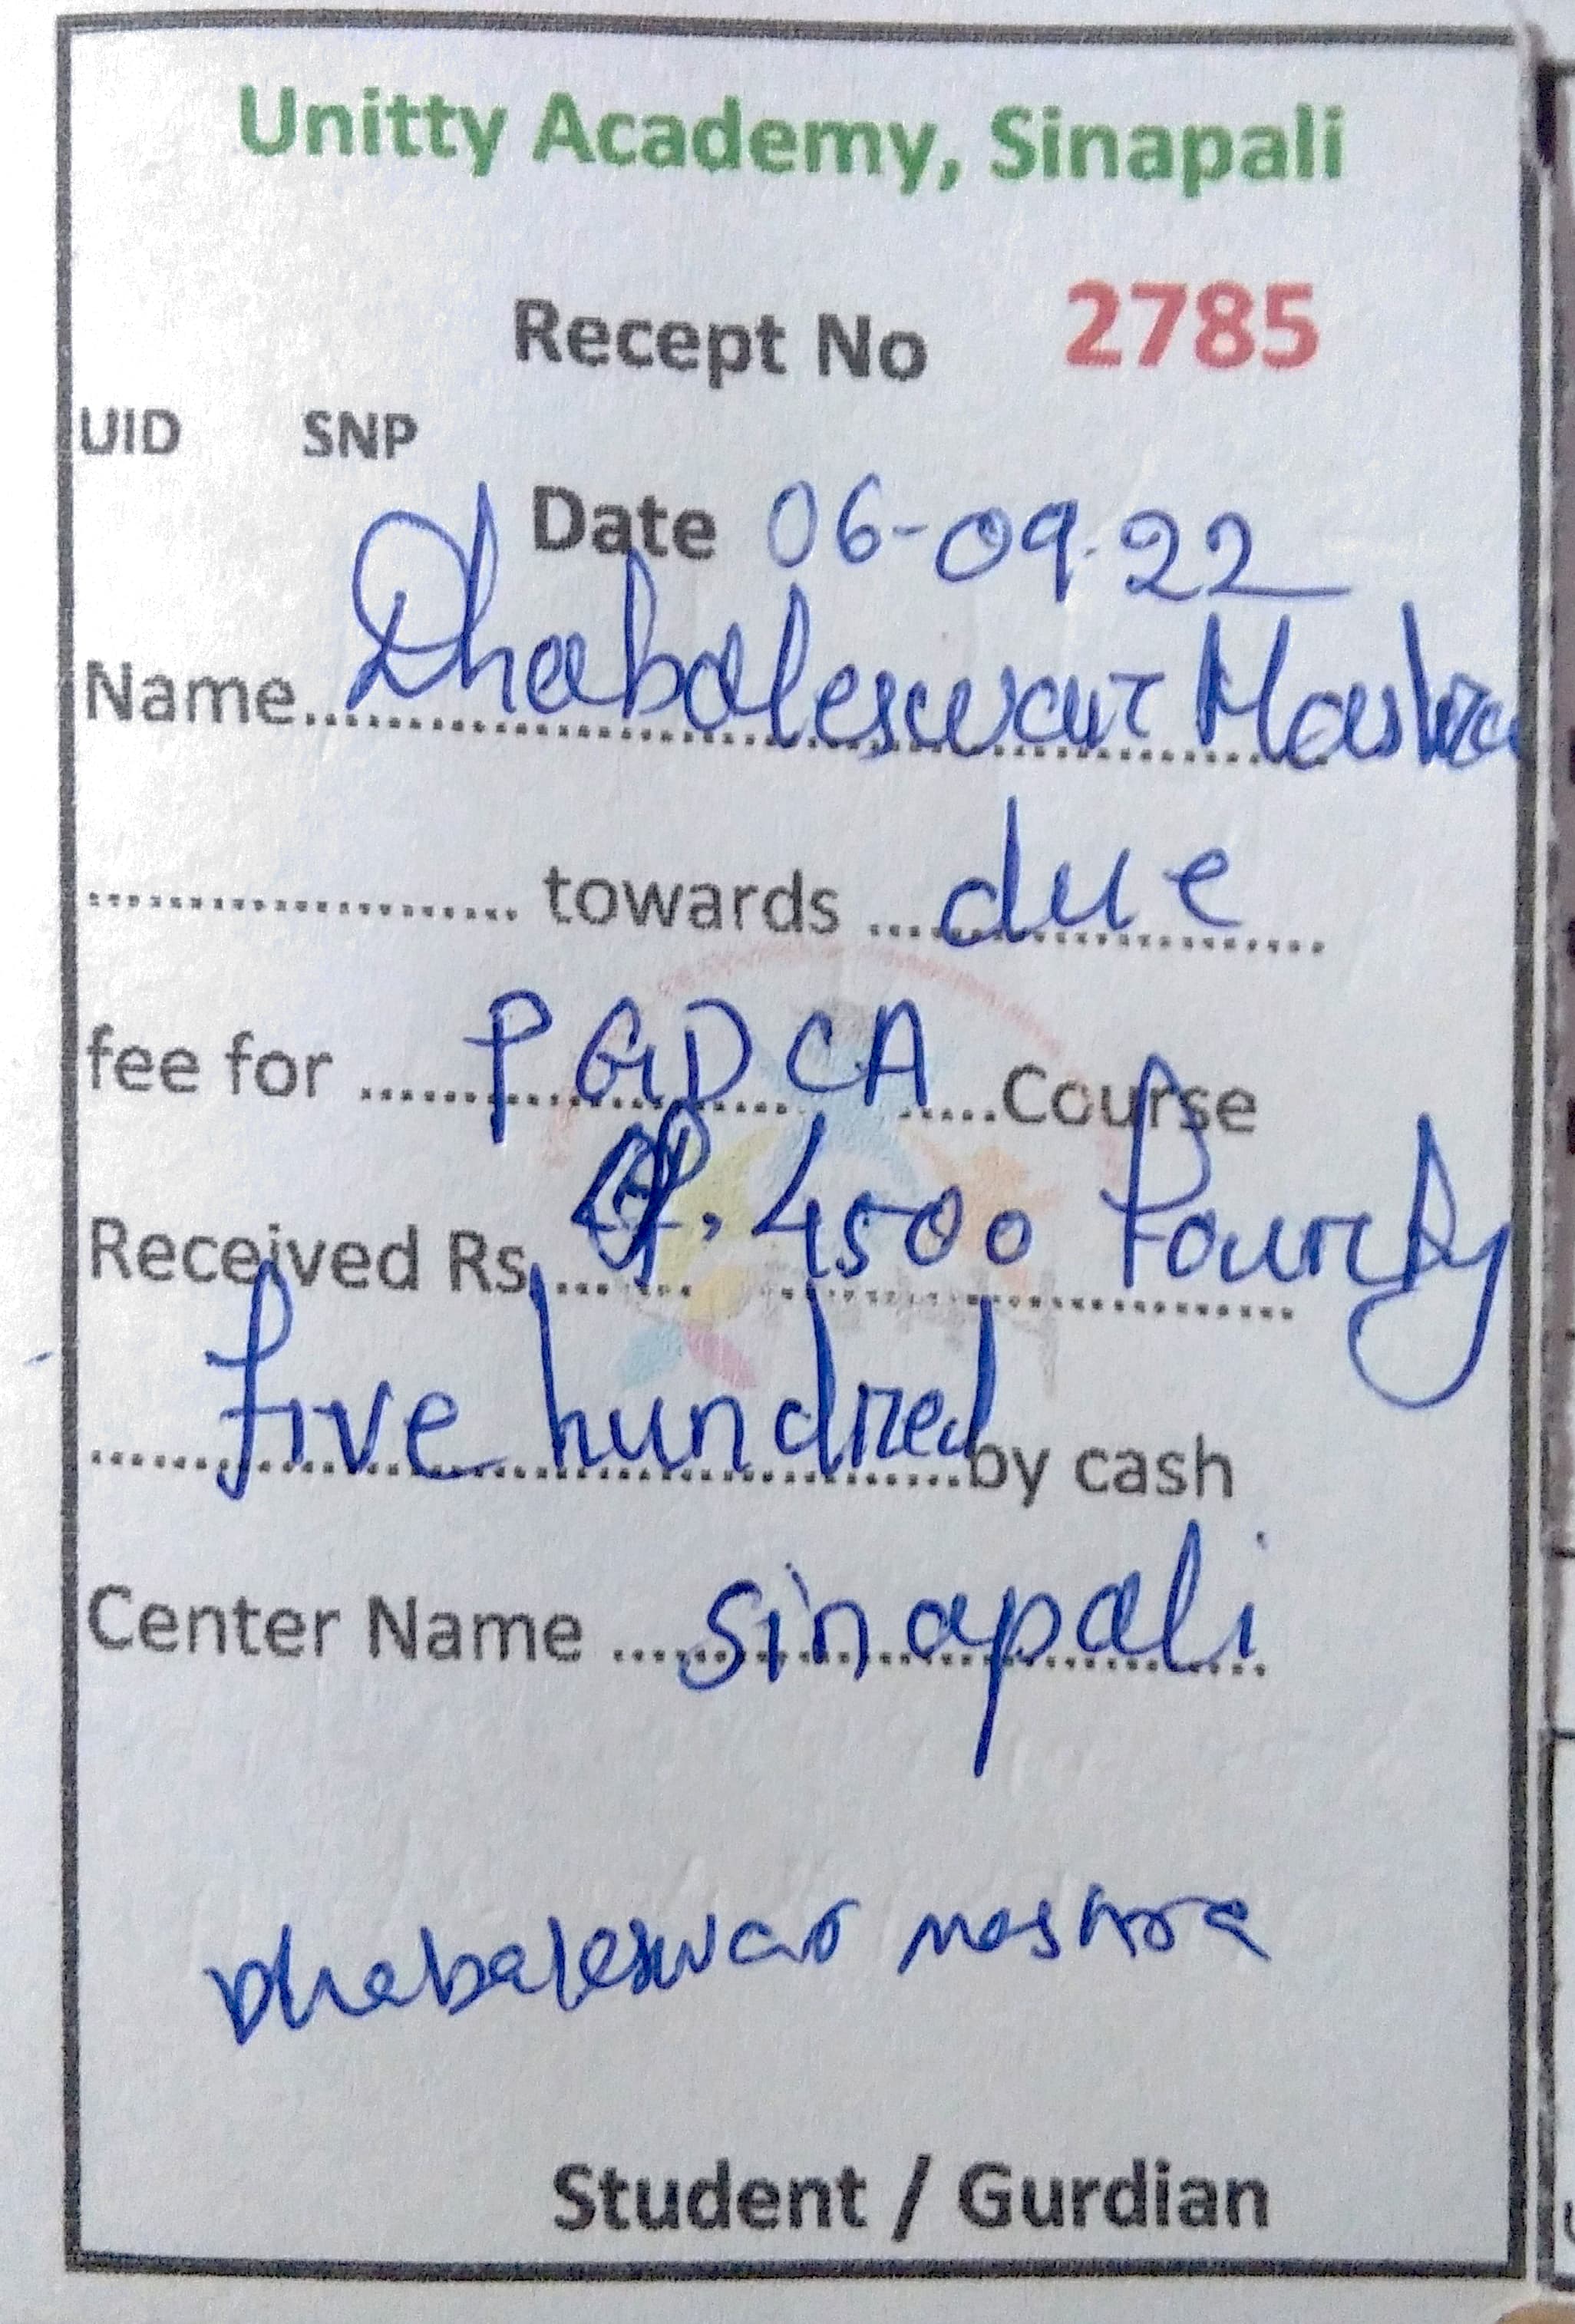 Unitty Academy, Sinapali
Recept No 2785
UID SNP
Date 06-09-22
Name Dhabaleswar Mastra
towards due
fee for PGDCA Course
Received Rs 4500 Fourty
five hundred by cash
Center Name Sinapali
Dhabaleswar mastra
Student / Gurdian